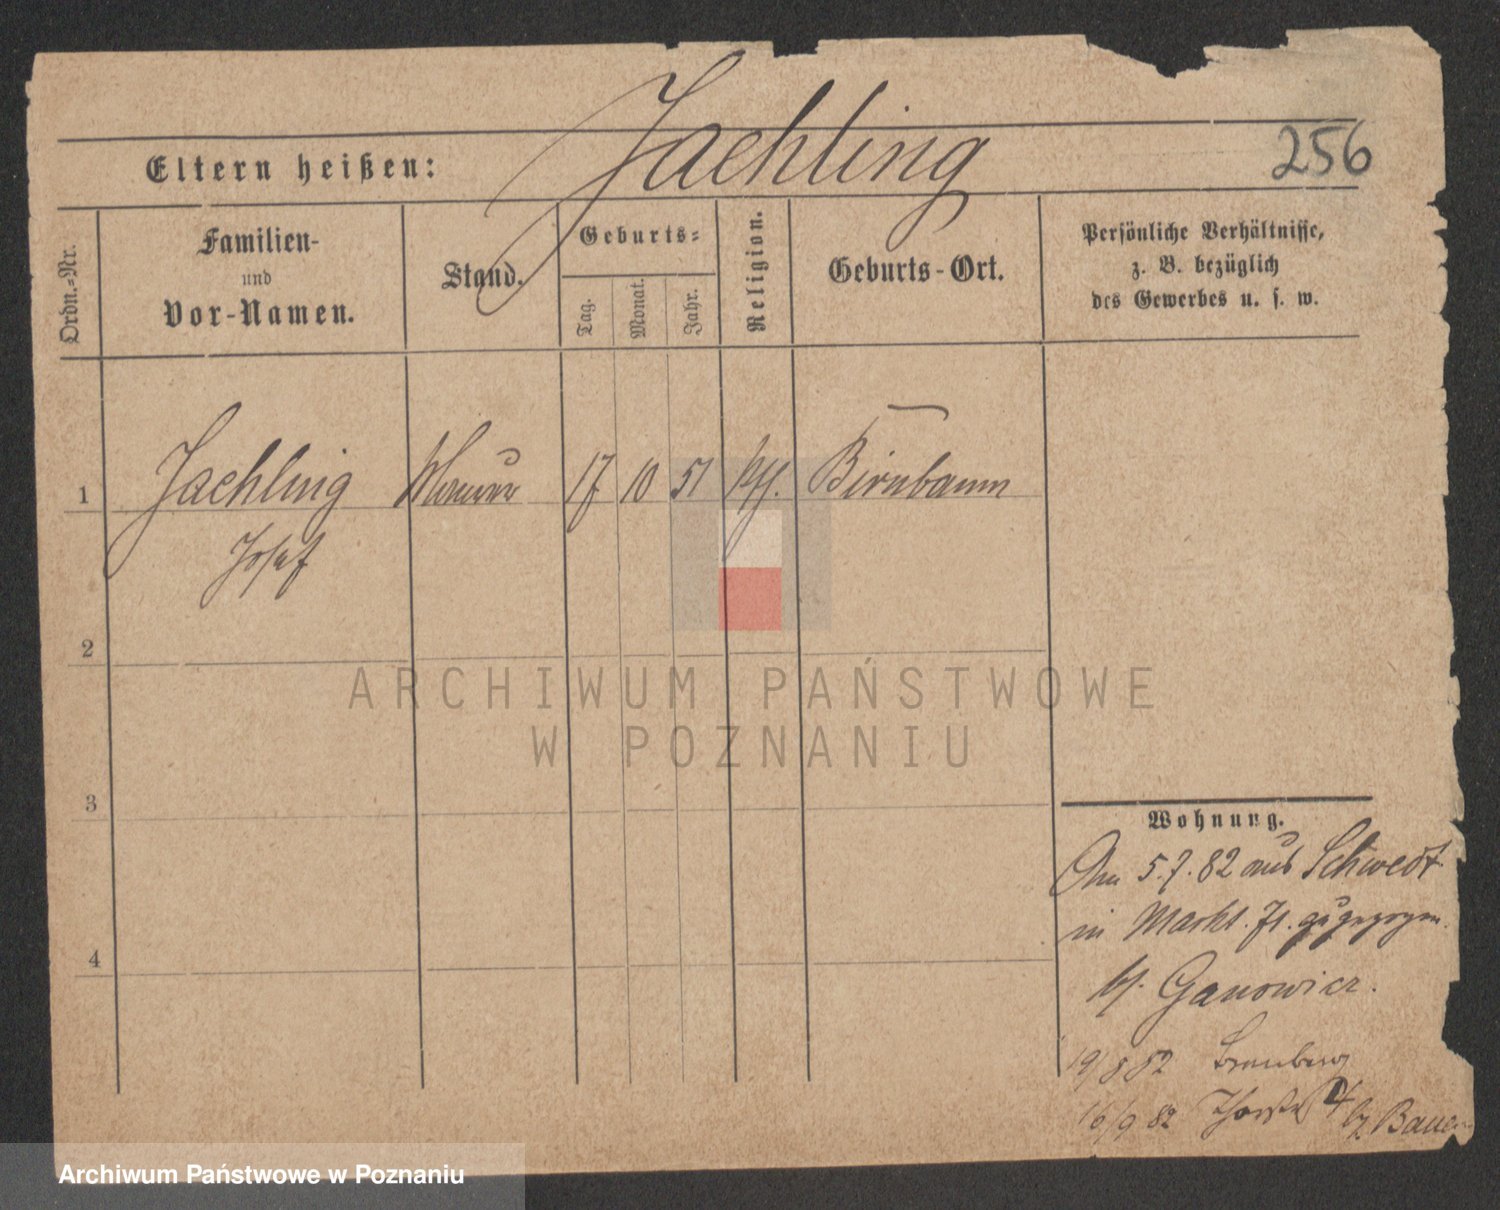 Jaehling
256
Eltern heißen:
Ordn.-Nr.
Familien-
und
Vor-Namen.
Stand.
Geburts-
Tag.
Monat.
Jahr.
Religion.
Geburts-Ort.
Persönliche Verhältnisse,
z. B. bezüglich
des Gewerbes u. s. w.
1
Jaehling
Maurer
17
10
51
Birnbaum
Josef
2
3
4
Wohnung.
Am 5.7.82 aus Schwedt
in zugezogen
Ganowicz.
19/8 82 Bromberg
16/9 82 Bauer
ARCHIWUM PAŃSTWOWE
W POZNANIU
Archiwum Państwowe w Poznaniu